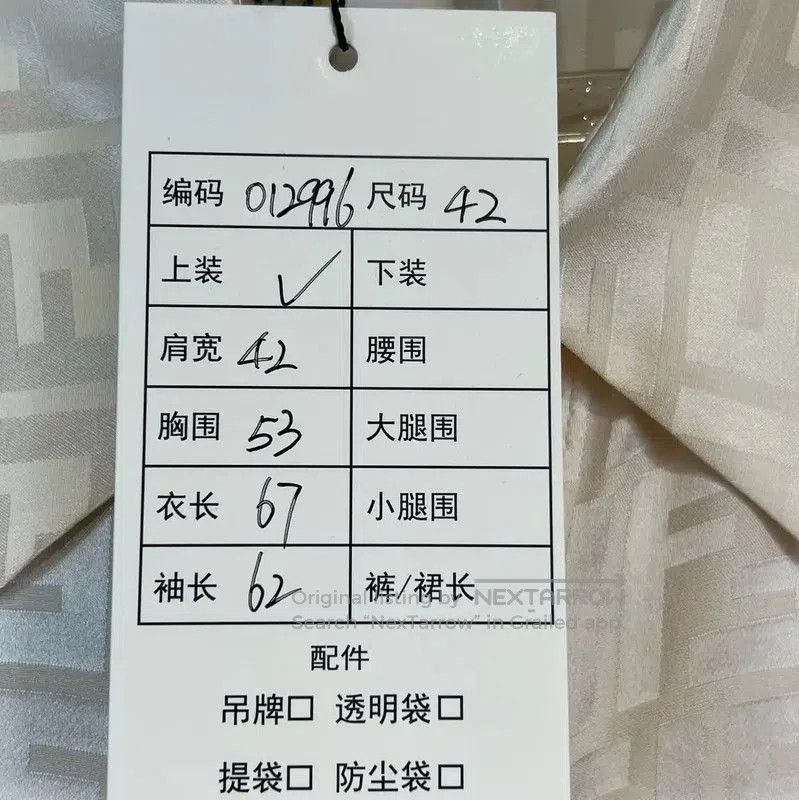 编码 012996 尺码 42
上装 ✓ 下装
肩宽 42 腰围
胸围 53 大腿围
衣长 67 小腿围
袖长 62 裤/裙长
Original listing by NEXTARROW
Search "NexTarrow" in Grailed app
配件
吊牌□ 透明袋□
提袋□ 防尘袋□